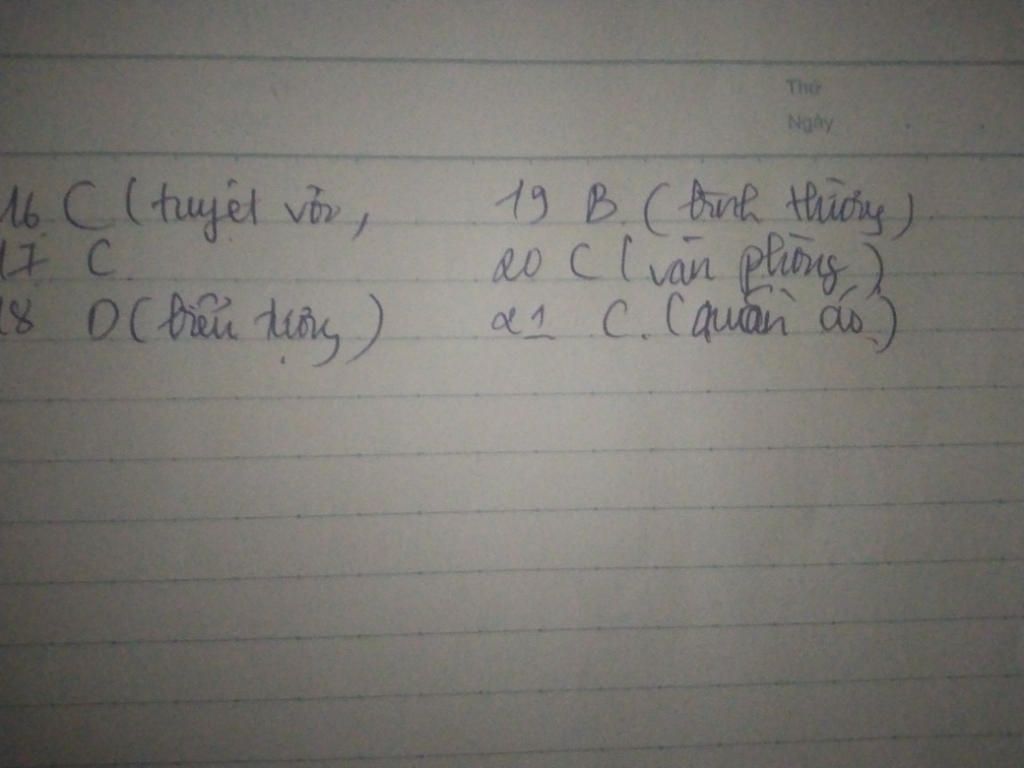 Thứ
Ngày
16 C (tuyệt vời,
17 C.
18 D (biểu tượng)
19 B. (bình thường)
20 C (văn phòng)
21 C. (quần áo)